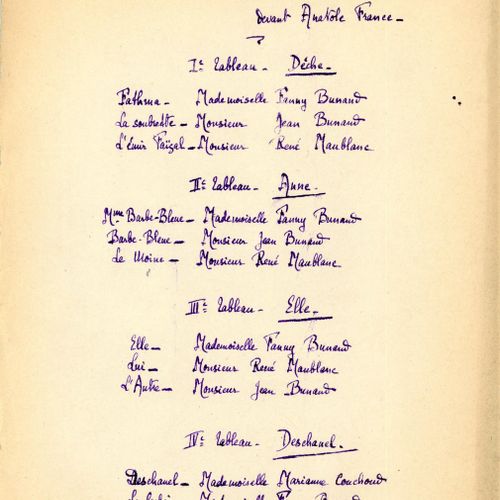 devant Anatole France -
Ie tableau - Dèche -
Fathma - Mademoiselle Fanny Bunand
La soubrette - Monsieur Jean Bunand
L'émir Faïzal - Monsieur René Maublanc
IIe tableau - Anne -
Mme Barbe-Bleue - Mademoiselle Fanny Bunand
Barbe-Bleue - Monsieur Jean Bunand
Le Moine - Monsieur René Maublanc
IIIe tableau - Elle -
Elle - Mademoiselle Fanny Bunand
Lui - Monsieur René Maublanc
L'Autre - Monsieur Jean Bunand
IVe tableau - Deschanel -
Deschanel - Mademoiselle Marianne Couchoud